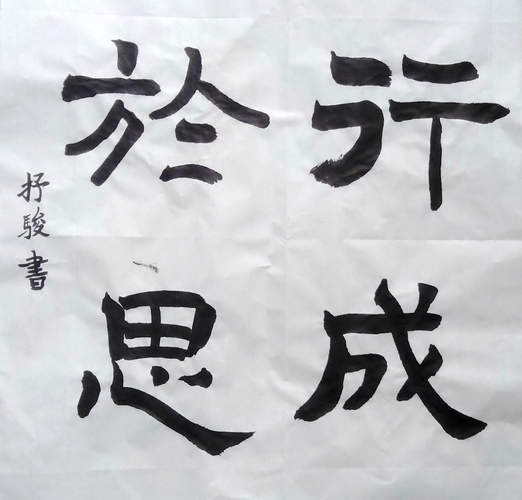 行成
於思
抒駿書